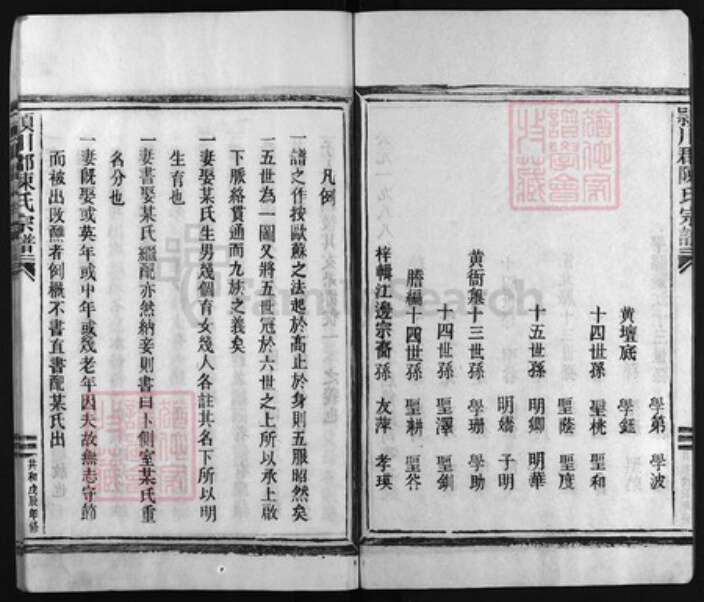 潁川郡陳氏宗譜
學第 學波
黄壇底 學鑑
十四世孫 聖桃 聖和
聖蔭 聖度
十五世孫 明卿 明華
明嬌 子明
黄衙襄十三世孫 學珊 學助
十四世孫 聖澤 聖釧
謄編十四世孫 聖耕 聖答
梓輯江邊宗裔孫 友萍 孝瑛
凡例
一譜之作按歐蘇之法起於高止於身則五服昭然矣
一五世為一圖又將五世冠於六世之上所以承上啟
下脈絡貫通而九族之義矣
一妻娶某氏生男幾個有女幾人各註其名下所以明
生育也
一妻書娶某氏繼配亦然納妾則書曰卜側室某氏重
名分也
一妻既娶或英年或中年或幾老年因夫故無志守節
而被出改醮者例概不書直書配某氏出
潁川郡陳氏宗譜
共和戊辰年修
FamilySearch